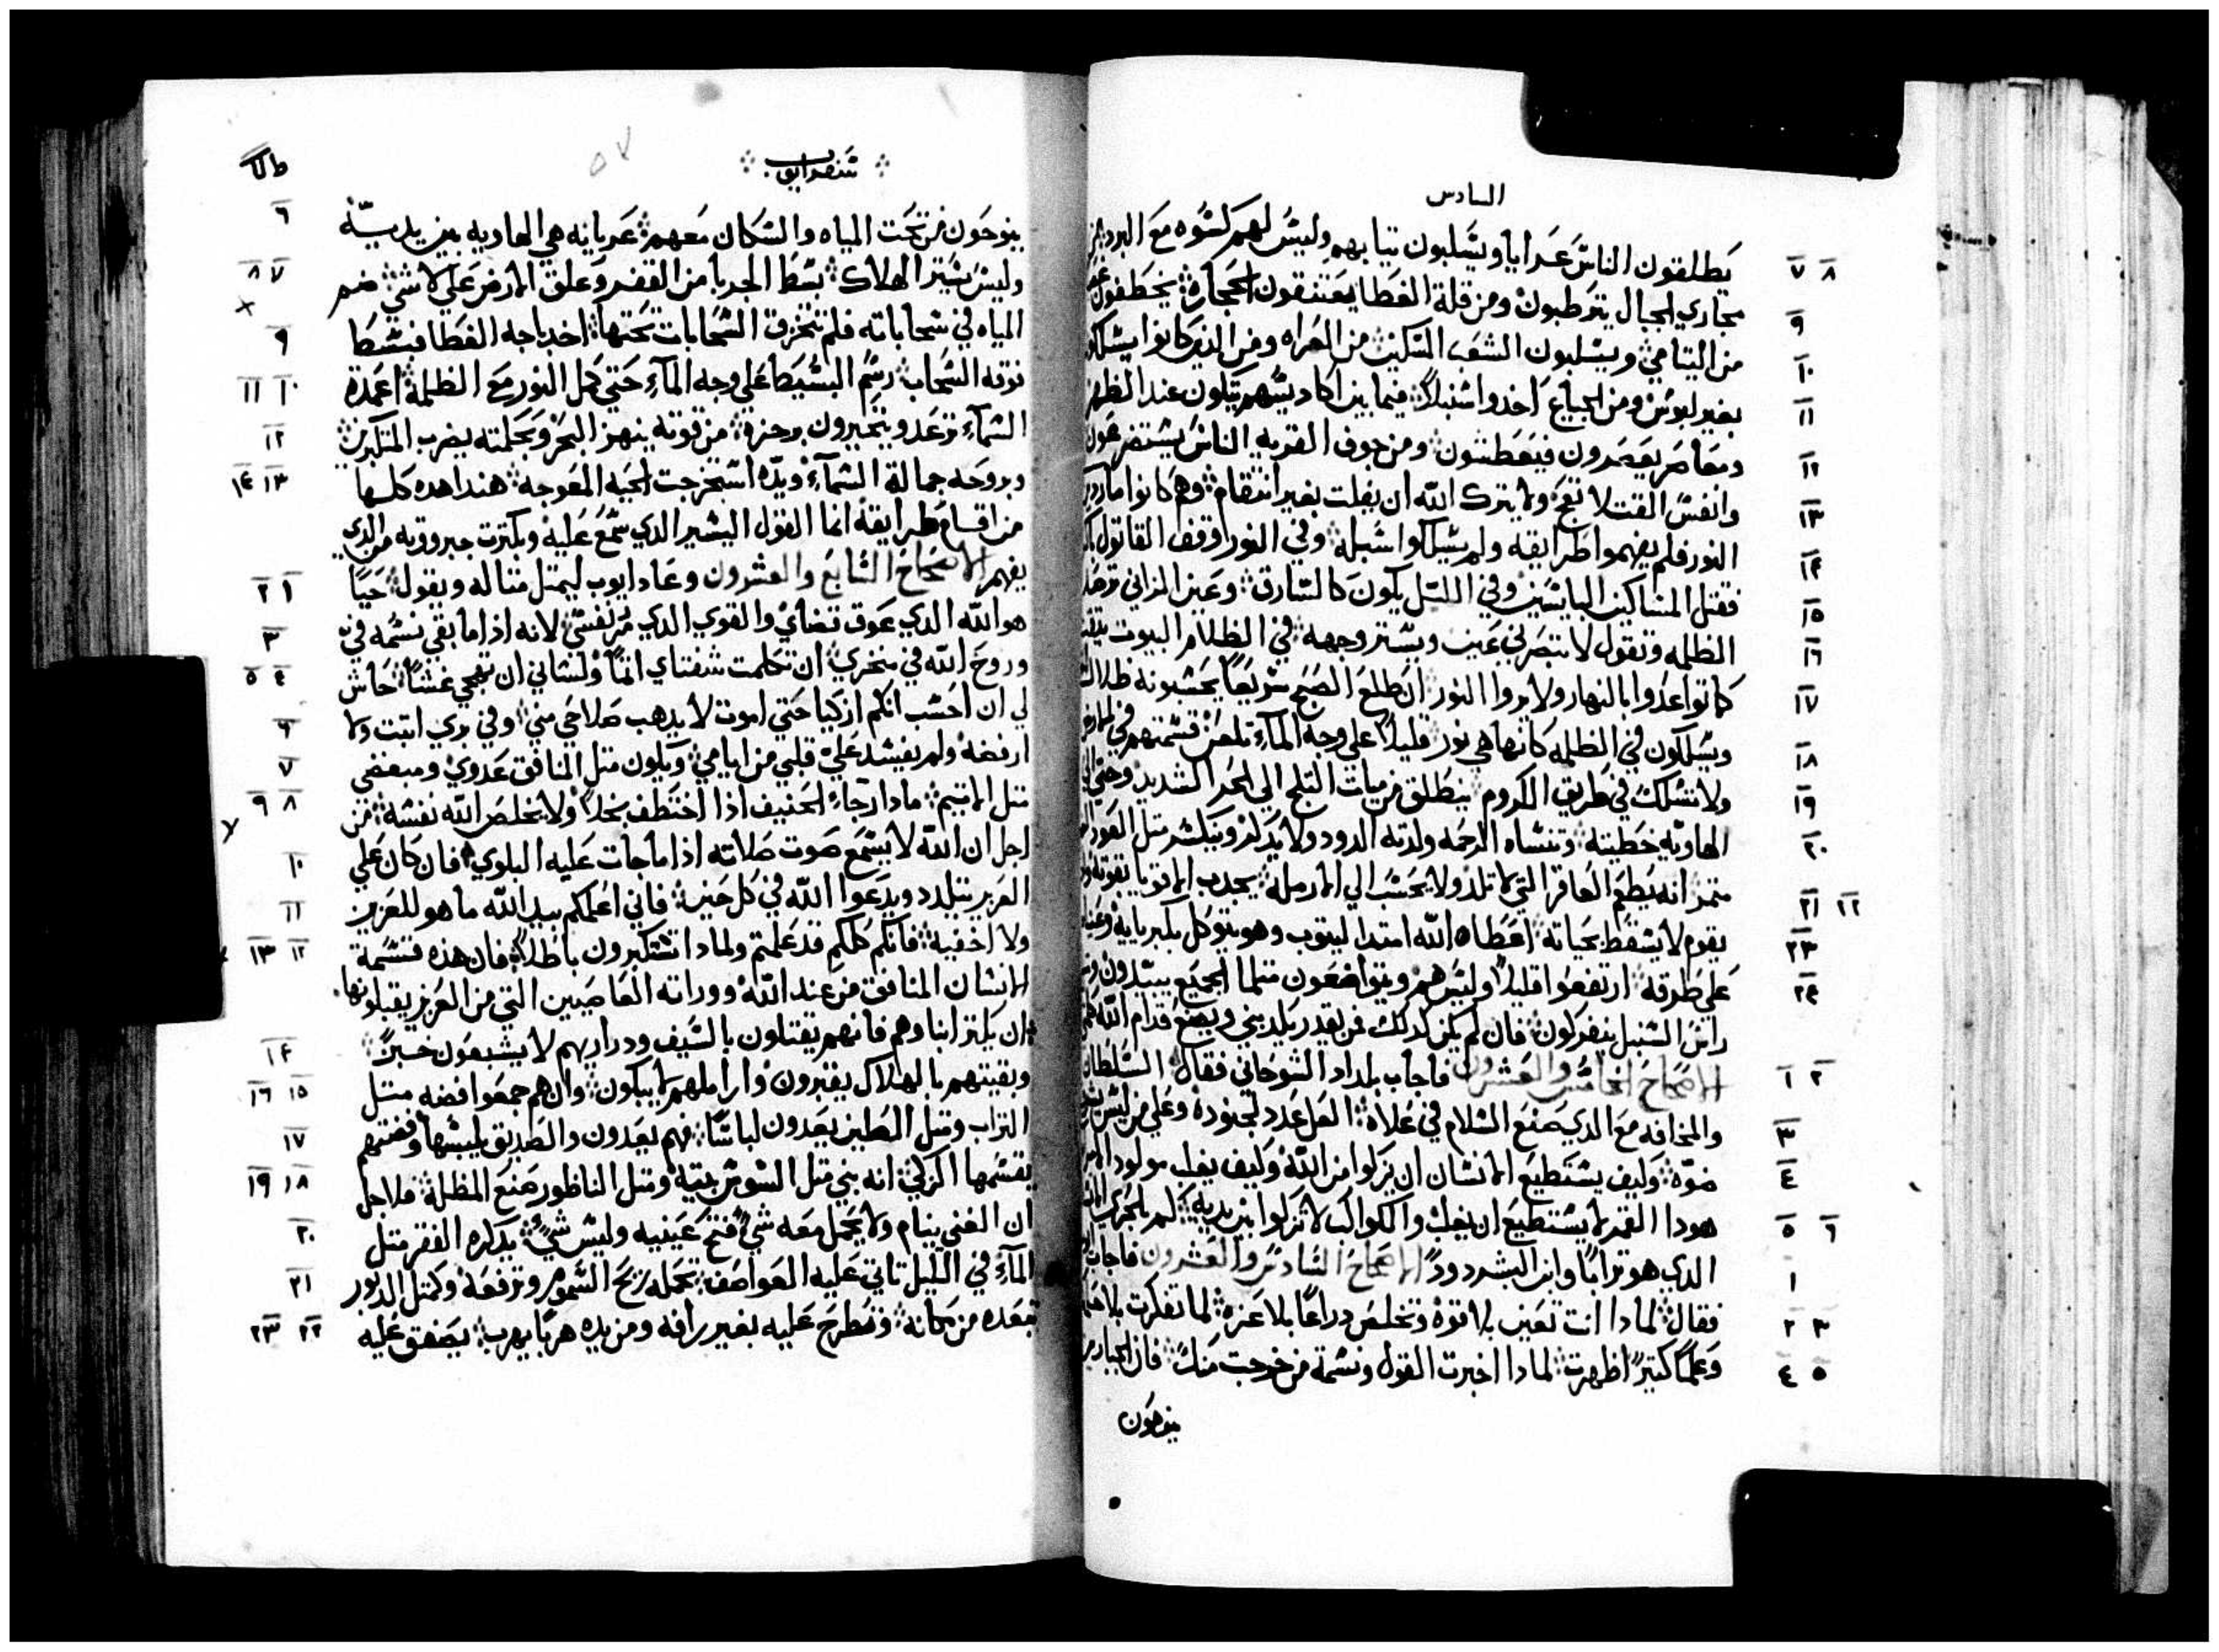 السادس
يطلقون الناس عرايا ويسلبون تيابهم وليس لهم كسوه مع البرد من
مجاري الجبال يترطبون ومن قلة الغطا يعتنقون الحجارة يخطفون
من اليتامي ويسلبون الشعب المسكين من العراه ومن الدين كانوا يسلكون
بغير لبوس ومن الجياع اخدوا سنبلا فيما بين اكاديسهم يتلون عند الظهر
ومعاصر يعصرون فيعطشون ومن جوف القريه الناس يستضرعون
وانفس القتلا تفج ولا يترك الله ان يفلت بغير انتقام وهم كانوا ماردين
النور فلم يفهموا طرايقه ولم يسلكوا سبله وفي النور اوقف القاتول
فقتل المساكين البايسين وفي الليل يكون كالسارق وعين الزاني ترصد
الظلمه وتقول لا تبصرني عين ويستر وجهه في الظلام البيوت
كما تواعدوا بالنهار ولا يروا النور ان طلع الصبح سريعا يحسبونه ظلال
ويسلكون في الظلمه كانها هي نور قليلا علي وجه المآء تلعن قسمتهم في الارض
ولا تسلك في طريق الكروم ينطلق من ميات التلج الي الحر الشديد وحتي الي
الهاويه خطيته وتنساه الرحمه ولدته الدود ولا يدكر وينكسر متل العود
متمر انه يطعم العاقر التي لا تلد ولا يحسن الي الارمله يجدب الاقويا بقوته
يقوم لا يسقط بحياته اعطاه الله امتدا ليتوب وهو يتوكل بكبريايه وعيناه
علي طرقه ارتفعوا قليلا وليس هم ويتواضعون متلما الجميع يبيدون
راس السنبل ينفركون فان لم يكن كدلك من يقدر يكدبني ويضع قدام الله
الاصحاح الخامس والعشرون فاجاب بلداد الشوحاني فقال السلطان
والمخافه مع الدي صنع السلام في علاه العل عدد لجنوده وعلي من ليس
ضوه وكيف يستطيع الانسان ان يزكوا من الله وكيف يغلب مولود
هودا القمر لا يستطيع ان يغلب والكواكب لا تزكوا بين يديه كم بالحري
الدي هو ترابا وابن البشر دود الاصحاح السادس والعشرون فاجاب
فقال لمادا انت تعين بلا قوة وتخلص دراعا بلا عزه لما تفكرت بلا
وعلما كتيرا اظهرت لمادا اخبرت القول ونسمة من خرجت منك فان الجبابره
ينوحون
سفر ايوب
ينوحون من تحت المياه والسكان معهم عريانه هي الهاويه بين يديه
وليس ستر الهلاك بسط الجربيا من القفر وعلق الارض علي لا شي ضم
المياه في سحاباته فلم تنخرق السحابات تحتها اخد باجه الغطا فبسط
فوقه السحاب رسم البسيط علي وجه المآء حتي كمل النور مع الظلمة اعمدة
السمآء ترعد ويتحيرون برجزه من قوته ينهز البحر وبحكمته يضرب المتكبرين
وبروحه جمالة السمآء ويده استخرجت الحيه المعوجه هندا هده كلها
من اقسام طرايقه انما القول اليسير الدي سمع عليه وبكترت جبروته من الدي
يفهم الاصحاح السابع والعشرون وعاد ايوب ليمتل متاله ويقول حيا
هو الله الدي عوق قضاي والقوي الدي مرر نفسي لانه ادا ما بقي نسمه في
وروح الله في منخري ان تكلمت شفتاي اتما ولساني ان تهجي غشا حاش
لي ان احسب انكم ازكيا حتي اموت لا يدهب صلاحي مني وفي بري اتبت ولا
ارفضه ولم يفسد علي قلبي من ايامي ويكون متل المنافق عدوي ومبغضي
متل الاتيم مادا رجاء الحنيف ادا اختطف بخلا ولا يخلص الله نفسه من
اجل ان الله لا يسمع صوت صلاته ادا ما جات عليه البلوي فان كان علي
العزيز يتلدد ويدعوا الله في كل حين فاني اعلمكم بيد الله ما هو للعزيز
ولا اخفيه فانكم كلكم قد علمتم ولمادا تستكبرون باطلا فان هده قسمة
الانسان المنافق من عند الله ووراته الغاصبين التي من العزيز يقبلونها
ان يكتر ابناوهم فانهم يقتلون بالسيف ودراريهم لا يشبعون خبزا
وبقيتهم بالهلاك يقبرون واراملهم لا يبكون وان هم جمعوا فضه متل
التراب ومتل الطين يعدون لباسا فهم يعدون والصديق يلبسها وفضتهم
يقسمها الزكي انه بني متل السوس بيته ومتل الناظور صنع المظلة فلاجل
ان الغني ينام ولا يحمل معه شي فتح عينيه وليس شي يدركه الفقر متل
المآء في الليل تاتي عليه العواصف تحمله ريح السموم وترفعه وكمتل الدبور
تبعده من مكانه وتطرح عليه بغير رافه ومن يده هربا يهرب يصفق عليه